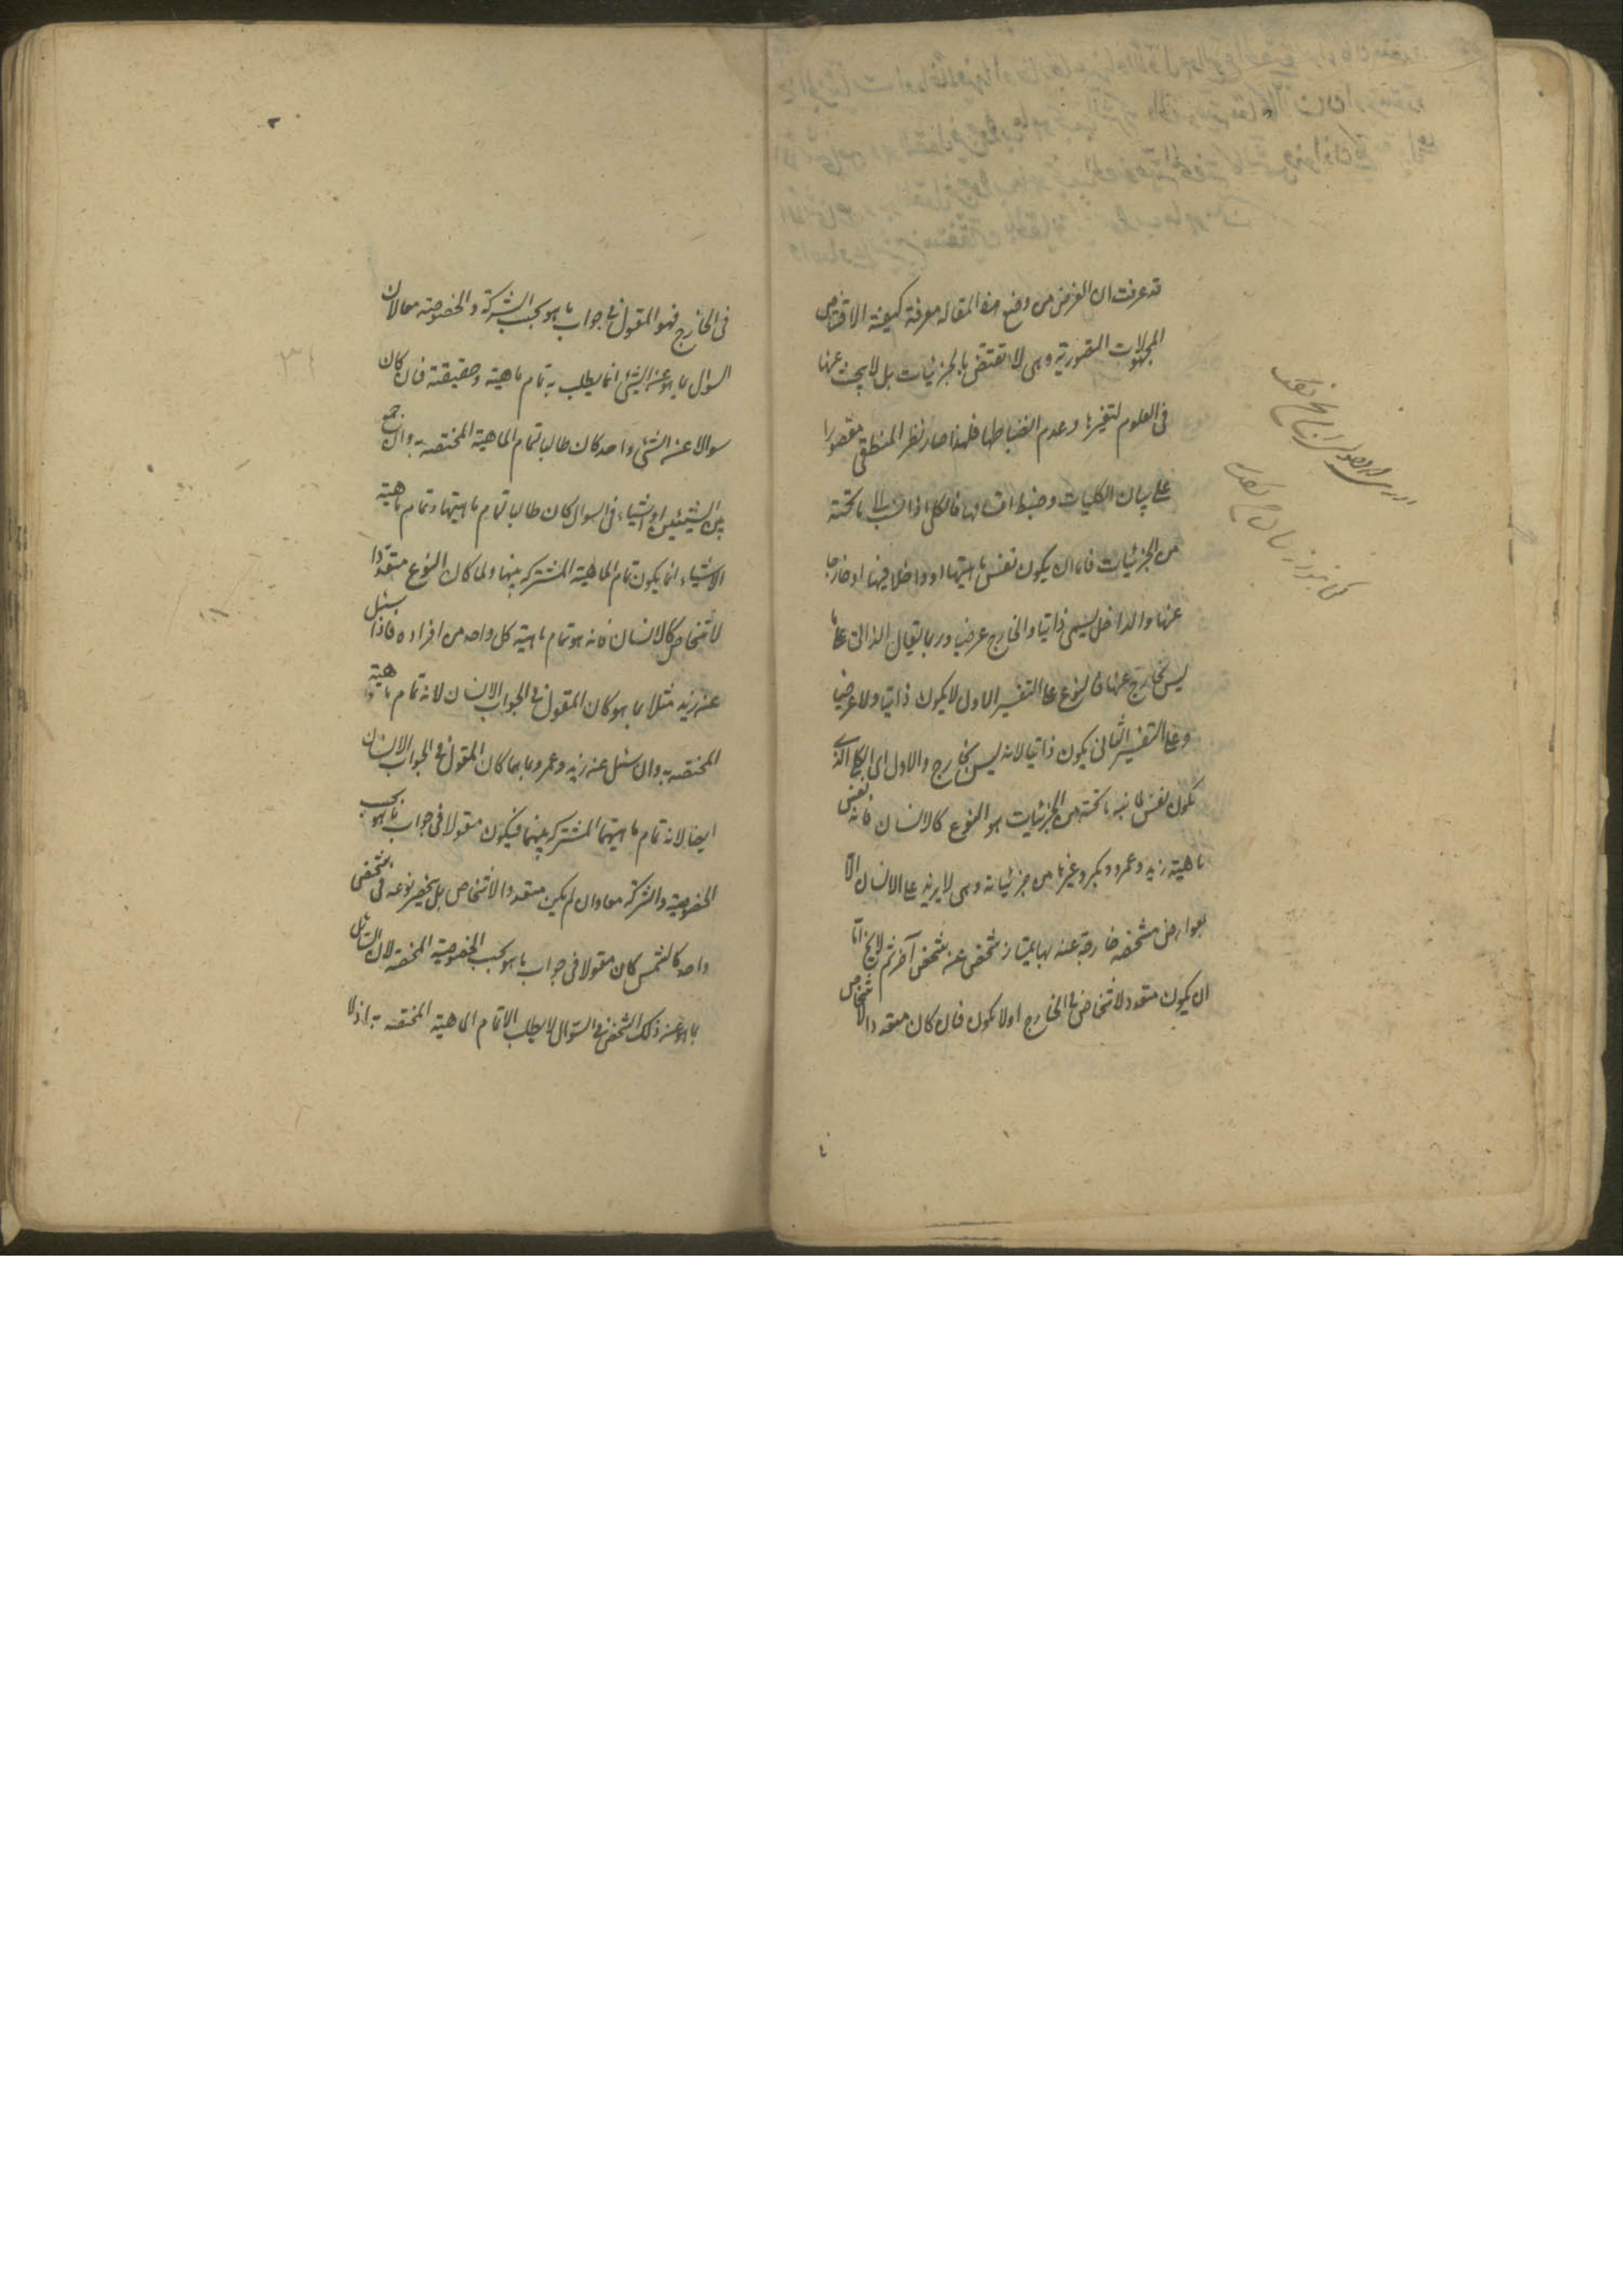 قد عرفت ان الغرض من وضع هذه المقاله معرفة كيفية الاقتناص
المجهولات التصورية وهى لا تقتنص بالجزئيات بل لا يبحث عنها
فى العلوم لتغيرها وعدم انضباطها فلهذا صار نظر المنطقى مقصورا
على بيان الكليات وضبط اقسامها فالكلى اذا نسب الى ما تحته
من الجزئيات فاما ان يكون نفس ماهيتها او داخلا فيها او خارجا
عنها والداخل يسمى ذاتيا والخارج عرضيا وربما يقال الذاتى على ما
ليس بخارج عنها فالنوع على التفسير الاول لا يكون ذاتيا ولا عرضيا
وعلى التفسير الثانى يكون ذاتيا لانه ليس بخارج والاول اى الكلى الذى
يكون نفس ماهية ما تحته من الجزئيات هو النوع كالانسان فانه نفس
ماهية زيد وعمرو وبكر وغيرها من جزئياته وهى لا يزيد على الانسان الا
بعوارض مشخصه خارجة عنه بها يمتاز شخص عن شخص آخر ثم لا يخ اما
ان يكون متعدد الاشخاص فى الخارج اولا يكون فان كان متعدد الاشخاص
فى الخارج فهو المقول فى جواب ما هو بحسب الشركة والخصوصية معا لان
السؤال بما هو عن الشئ انما يطلب به تمام ماهيته وحقيقته فان كان
سوالا عن الشئ واحد كان طالبا تمام الماهية المختصة به وان جمع
بين الشيئين او اشياء فى السوال كان طالبا تمام ماهيتها وتمام ماهية
الاشياء انما يكون تمام الماهية المشتركه بينها ولما كان النوع متعددا
لاشخاص كالانسان فانه هو تمام ماهية كل واحد من افراده فاذا سئل
عن زيد مثلا بما هو كان المقول فى الجواب الانسان لانه تمام ماهية
المختصة به وان سئل عن زيد وعمرو بما هما كان المقول فى الجواب الانسان
ايضا لانه تمام ماهيتهما المشتركه بينهما فيكون مقولا فى جواب ما هو بحسب
الخصوصية والشركة معا وان لم يكن متعدد الاشخاص بل ينحصر نوعه فى شخص
واحد كالشمس كان مقولا فى جواب ما هو بحسب الخصوصية المحضه لان السائل
بما هو عن ذلك الشخص فى السؤال لا يطلب الا تمام الماهية المختصة به اذ لا